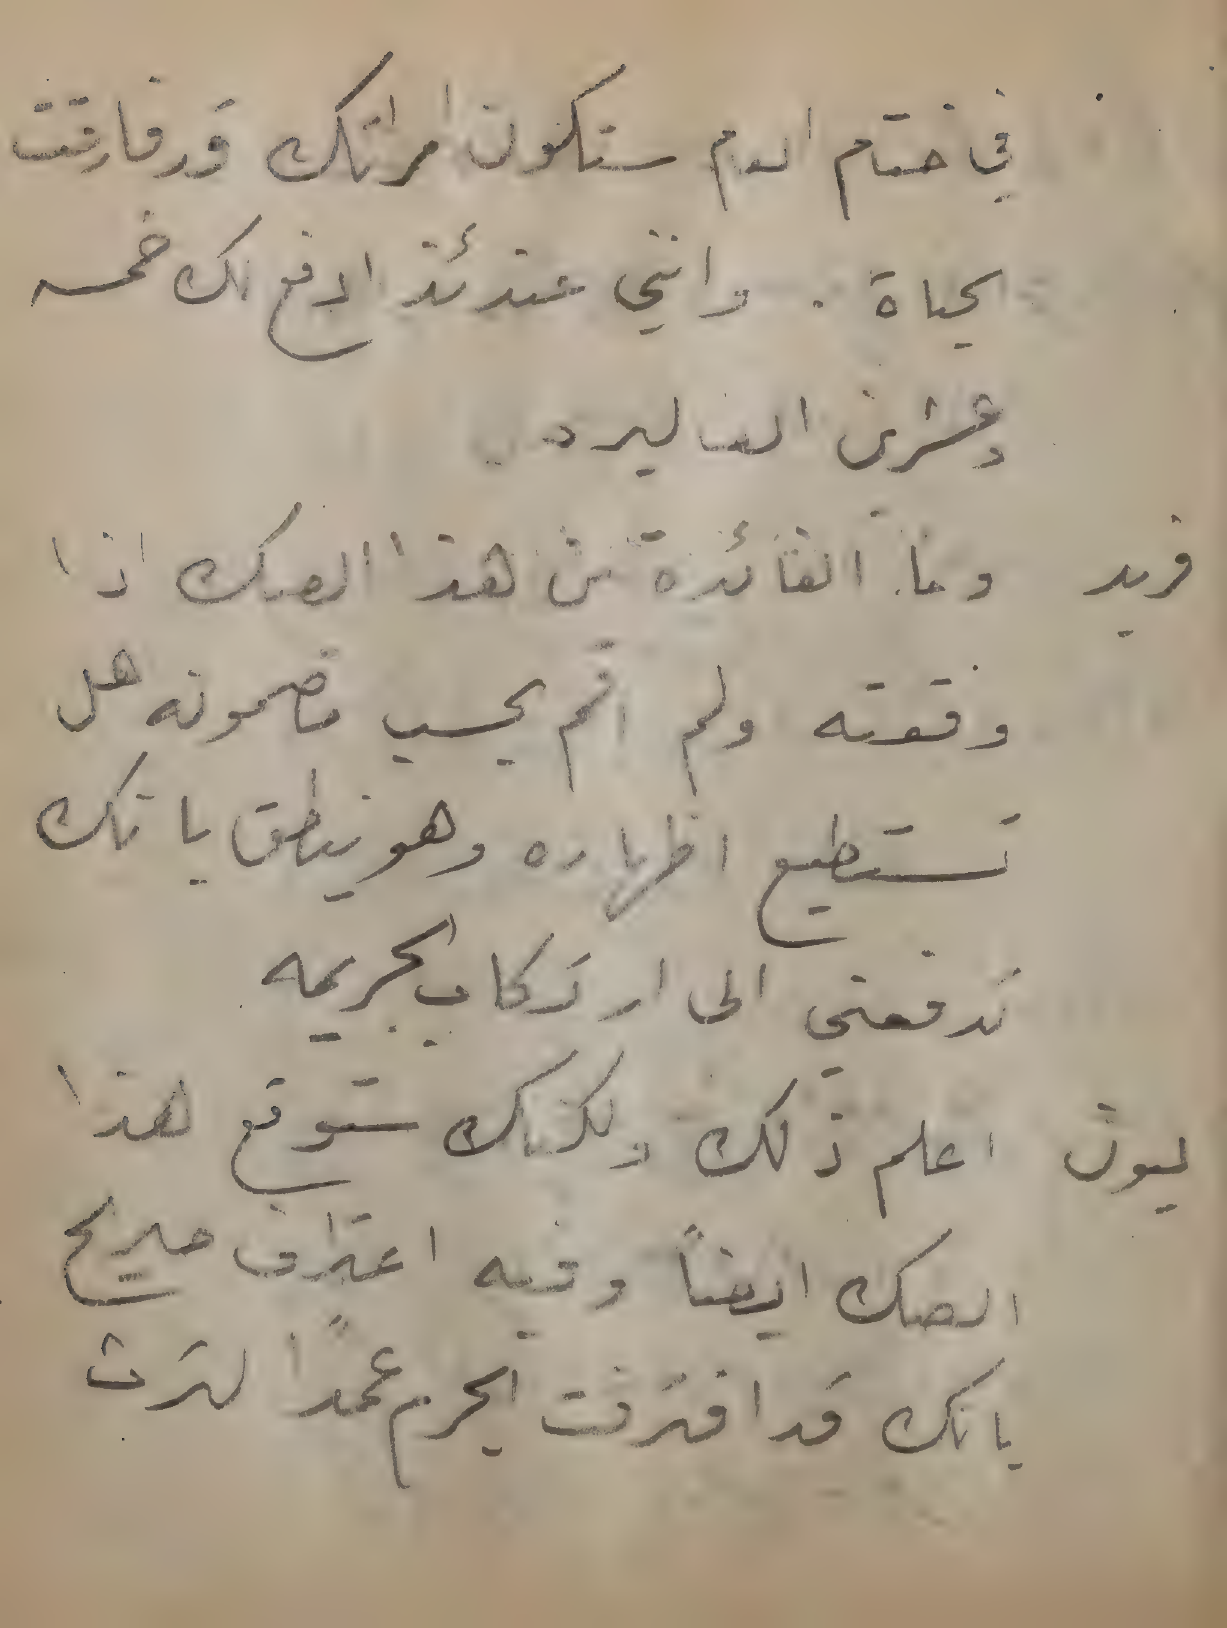 في ختام اليوم ستكون امراتك قد فارقت
الحياة . وانني عندئذ ادفع لك خمسه
وعشرين الف ليره
فريد وما الفائدة من هذا الصك اذا
وقعته ولم اقم بحسب مضمونه هل
تستطيع اظهاره وهو ينطق بانك
تدفعني الى ارتكاب الجريمه
ليون اعلم ذلك ولكنك ستوقع هذا
الصك ايضاً وفيه اعتراف صريح
بانك قد اقترفت الجرم عمداً لترث